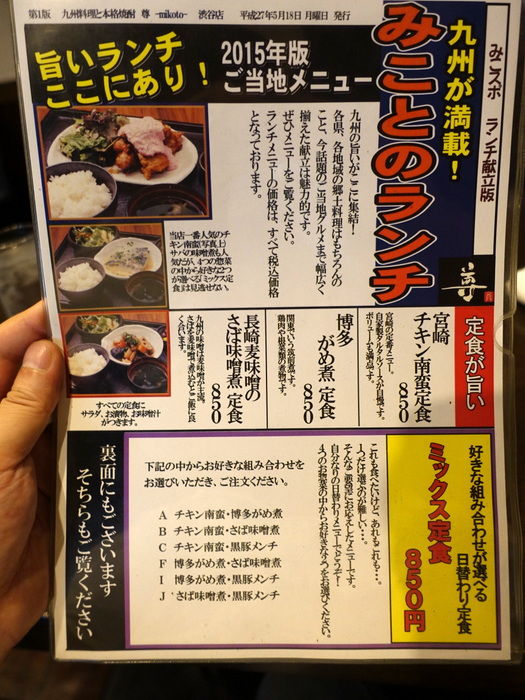 第1版 九州料理と本格焼酎 尊 -mikoto- 渋谷店 平成27年5月18日 月曜日 発行
みこスポ ランチ献立版
九州が満載！
みことのランチ
尊
旨いランチ
ここにあり！
2015年版
ご当地メニュー
九州の旨いがここに集結！
各県、各地域の郷土料理はもちろんの
こと、今話題のご当地グルメまで幅広く
揃えた献立は魅力的です。
ぜひメニューをご覧ください。
ランチメニューの価格は、すべて税込価格
となっております。
当店一番人気のチ
キン南蛮(写真上)
サバの味噌煮も人
気だが、4つの惣菜
の中から好きな2つ
が選べる「ミックス定
食」は見逃せない。
定食が旨い
宮崎
チキン南蛮定食
850
宮崎の定番メニュー。
自家製タルタルソースが自慢です。
ボリュームも満点です。
博多
がめ煮 定食
850
関東でいう筑前煮です。
鶏肉や根菜類の煮物です。
長崎麦味噌の
さば味噌煮 定食
850
九州の味噌は麦味噌が主流。
さばを麦味噌で煮込むとご飯に良
く合います。
すべての定食に
サラダ、お漬物、お味噌汁
がつきます。
好きな組み合わせが選べる
日替わり定食
ミックス定食
850円
これも食べたいけど、あれもこれも・・・。
1つだけ選ぶのが難しい・・・。
そんなご要望にお応えしたメニューです。
自分なりの日替わりメニューでどうぞ！
4つのお惣菜の中からお好きな2つをお選びください。
下記の中からお好きな組み合わせを
お選びいただき、ご注文ください。
A チキン南蛮・博多がめ煮
B チキン南蛮・さば味噌煮
C チキン南蛮・黒豚メンチ
F 博多がめ煮・さば味噌煮
I 博多がめ煮・黒豚メンチ
J さば味噌煮・黒豚メンチ
裏面にもございます
そちらもご覧ください